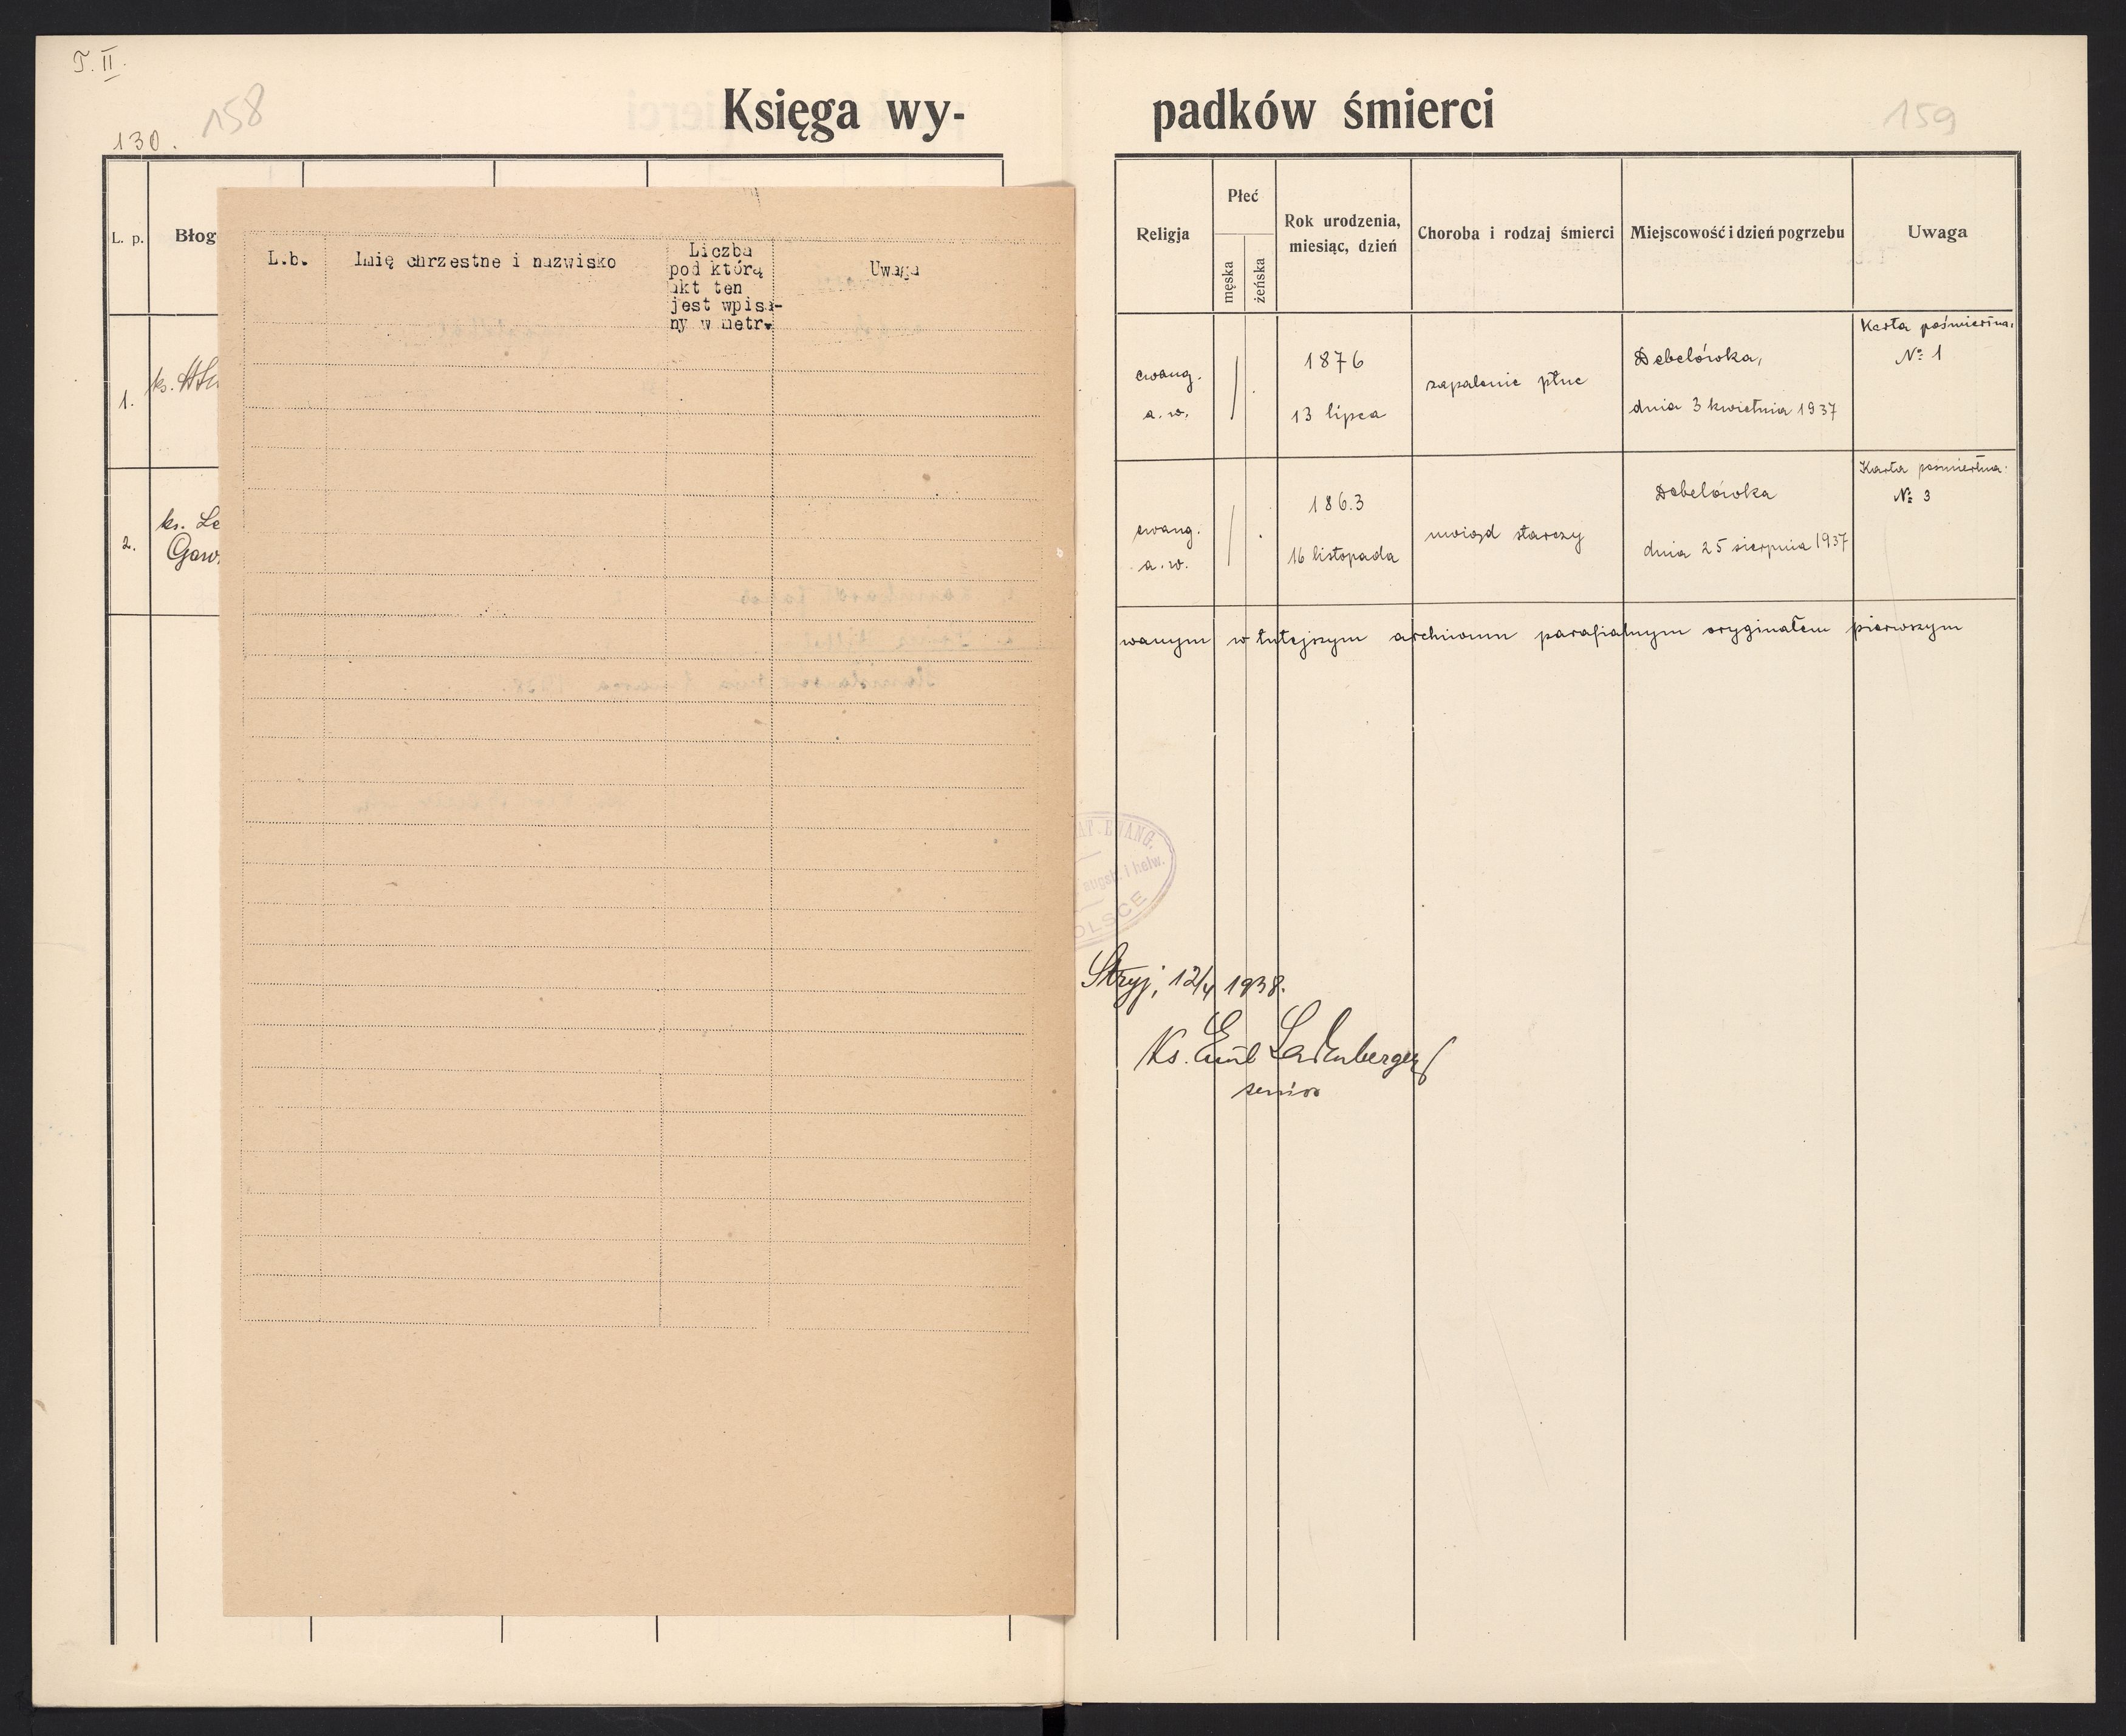 T. II.
158
130.
Księga wy-
L. p.
Błog
1.
2.
ks. Le
Gaw
L.b.
Imię chrzestne i nazwisko
Liczba
pod którą
akt ten
jest wpisa-
ny w metr.
Uwaga
padków śmierci
159
Religja
Płeć
męska
żeńska
Rok urodzenia,
miesiąc, dzień
Choroba i rodzaj śmierci
Miejscowość i dzień pogrzebu
Uwaga
ewang.
a. w.
1876
13 lipca
zapalenie płuc
Debelówka,
dnia 3 kwietnia 1937
Karta pośmiertna.
№ 1
ewang.
a. w.
1863
16 listopada
uwiąd starczy
Debelówka
dnia 25 sierpnia 1937
Karta pośmiertna.
№ 3
wanym w tutejszym archiwum parafialnym oryginałem pierwszym
AT. EWANG.
augsb. i helw.
OLSCE
Stryj, 12/4 1938.
Ks. Emil Ladenberger
senior